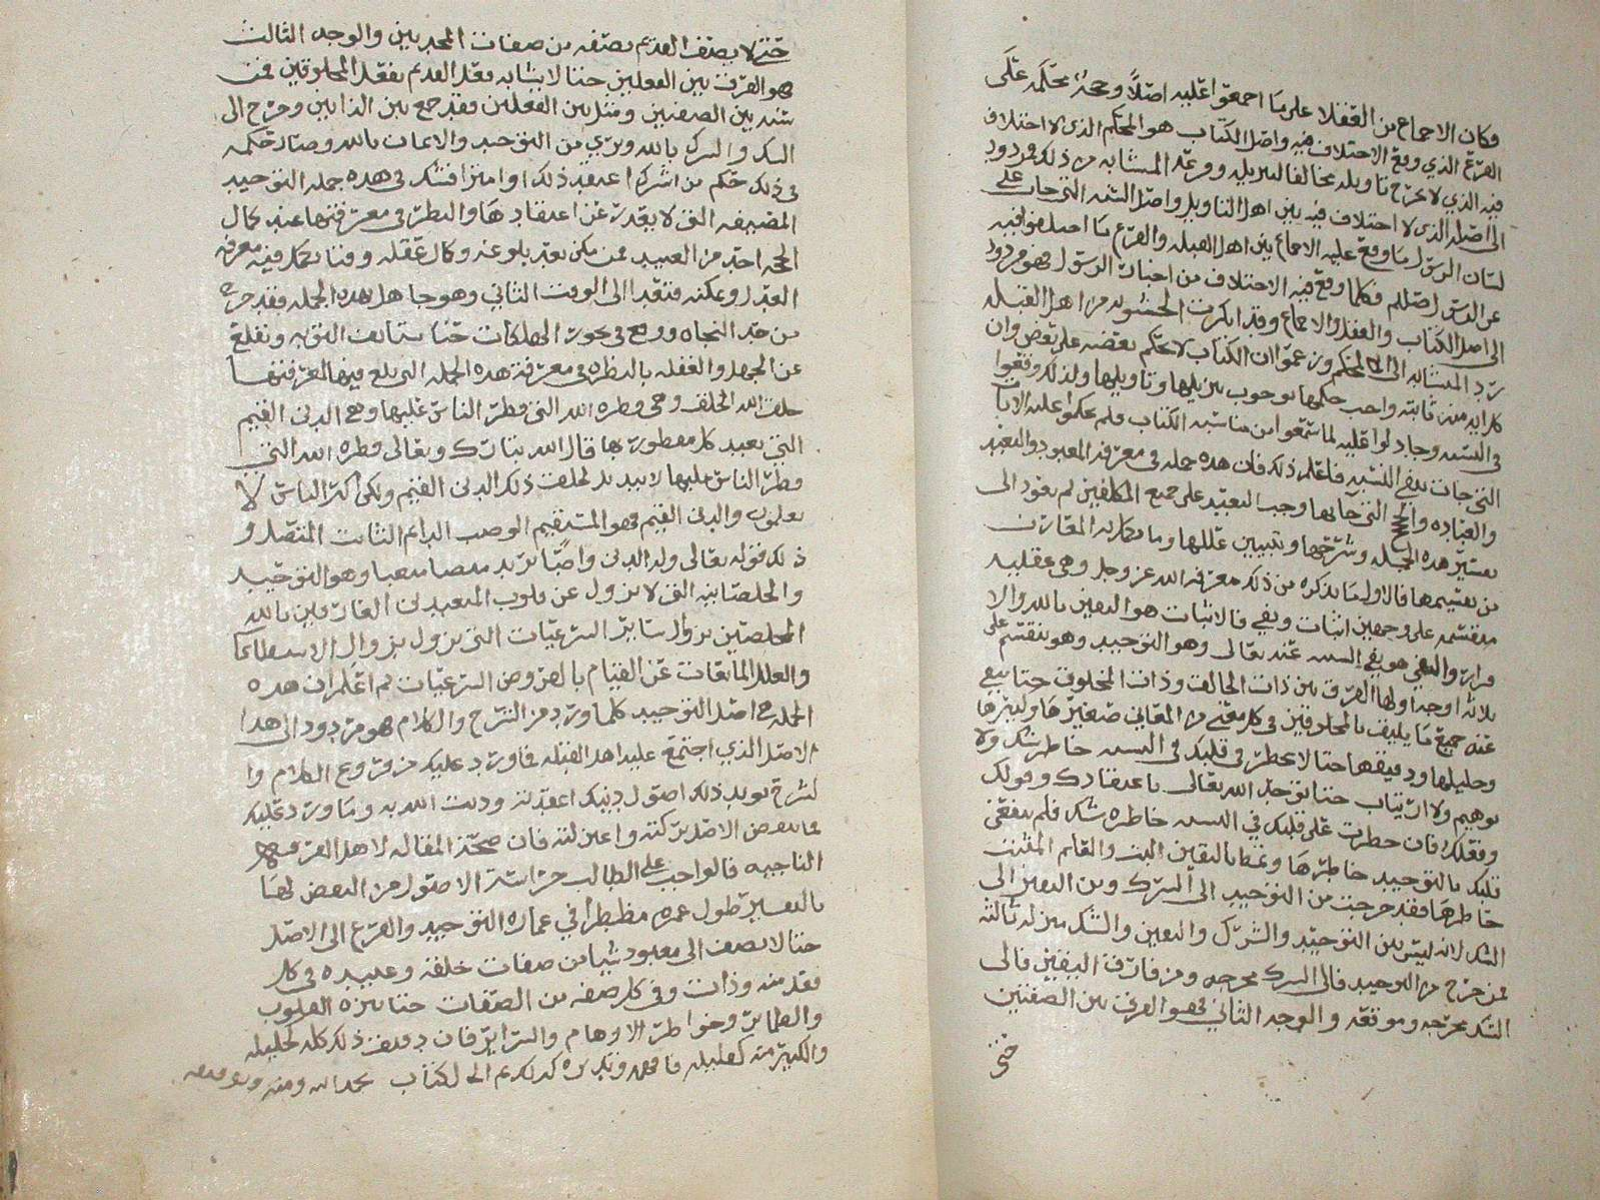 وكان الاجماع من العقلا على ما اجمعوا عليه اصلًا وحجة محكمة على
الفرع الذي وقع الاختلاف فيه واصل الكتاب هو المحكم الذي لا اختلاف
فيه الذي لا يخرج تاويله مخالفا لتنزيله وفرعه المتشابه من ذلك مردود
الى اصله الذي لا اختلاف فيه بين اهل التاويل واصل السنه التي جات على
لسان الرسول ما وقع عليه الاجماع بين اهل القبله والفرع ما اختلفوا فيه
عن الرسول صلعم فكلما وقع فيه الاختلاف من اخبار الرسول فهو مردود
الى اصل الكتاب والعقل والاجماع وقد انكرت الحشويه من اهل القبله
رد المتشابه الى المحكم وزعموا ان الكتاب لا يحكم بعضه على بعض وان
كل ايه منه ثابته واجب حكمها بوجوب تنزيلها وتاويلها ولذلك وقعوا
في التشبيه وجادلوا عليه لما سمعوا من متشابه الكتاب فلم يحكموا عليه الايات
التي جات بنفي التشبيه فاعلم ذلك فان هذه جمله في معرفة المعبود والتعبد
والعباده والحجج التي جا بها وجب التعبد على جميع المكلفين ثم نعود الى
تفسير هذه الجمله وشرحها وتبيين عللها وما
من تقسيمها فالاول ما نذكره من ذلك معرفة الله عز وجل وهي عقليه
منقسمه على وجهين اثبات ونفي فالاثبات هو اليقين بالله والا
قرار به والنفي هو نفي التشبيه عنه تعالى وهو التوحيد وهو ينقسم على
ثلاثة اوجه اولها الفرق بين ذات الخالق وذات المخلوق حتا ينفي
عنه جميع ما يليق بالمخلوقين في كل معنى من المعاني صغيرها وكبيرها
وجليلها ودقيقها حتا لا يخطر في قلبك في التشبيه خاطر شك ولا
توهيم ولا ارتياب حتا توحد الله تعالى باعتقادك وقولك
وفعلك فان خطرت على قلبك في التشبيه خاطره شك فلم ينفى عن
قلبك بالتوحيد خاطرها وتميط باليقين البت والعلم المثبت
حاطرها فقد خرجت من التوحيد الى الشرك ومن اليقين الى
الشك لانه ليس بين التوحيد والشرك واليقين والشك منزله ثالثه
فمن خرج من التوحيد فالى الشرك مخرجه ومن فارق اليقين فالى
الشك مخرجه وموقعه والوجه الثاني فهو الفرق بين الصفتين
حتى
حتى لا يصف القديم بصفه من صفات المحدثين والوجه الثالث
هو الفرق بين الفعلين حتا لا يشابه فعل القديم بفعل المخلوقين فمن
شبه بين الصفتين ومثل بين الفعلين فقد جمع بين الذاتين وخرج الى
الشك والشرك بالله وبري من التوحيد والايمان بالله وصار حكمه
في ذلك حكم من اشرك اعتقد ذلك او امترا فشك في هذه جملة التوحيد
المضيقه التي لا يعذر عن اعتقادها والنظر في معرفتها عند كمال
الحجه احد من العبيد فمن مكن بعد بلوغه وكمال عقله وقتا يمكن فيه معرفة
العدل ويمكنه فتعدا الى الوقت الثاني وهو جاهل بهذه الجمله فقد خرج
من حد النجاه ووقع في بحور الهلكات حتا يستانف التوبه ويقلع
عن الجهل والغفله بالنظر في معرفة هذه الجمله التي
خلق الله الخلق وهي فطرة الله التي فطر الناس عليها وهي الدين القيم
التي تعبد كل مفطور بها قال الله تبارك وتعالى فطرة الله التي
فطر الناس عليها لا تبديل لخلق الله ذلك الدين القيم ولكن اكثر الناس لا
يعلمون والدين القيم فهو المستقيم الوصب الدايم الثابت المتصل و
ذلك قوله تعالى وله الدين واصبًا يريد وهو التوحيد
والخلصانيه التي لا تزول عن قلوب المتعبدين العارفين بالله
المخلصين بزوال ساير الشرعيات التي تزول بزوال الاستطاعا
والعلل المانعات عن القيام بالفروض الشرعيات ثم اعلم ان هذه
الجمله هي اصل التوحيد كلما ورد من الشرح والكلام هو مردود الى هذا
الاصل الذي اجتمع عليه اهل القبله فما ورد عليك من فروع الكلام وا
لشرح يويد ذلك اصول دينك اعتقدته ودنت الله به وما ورد عليك
مما ينقض الاصل تركته واعتزلته فان صحة المقاله لاهل الفرقه
الناجيه فالواجب على الطالب حراسة الاصول من النقض لها
بالتفسير طول عمره في عمارة التوحيد والفرع الى الاصل
حتا لا يضف الى معبوده شيا من صفات خلقه وعبيده في كل
فعل منه وذات وفي كل صفه من الصفات حتا ينزه القلوب
والضماير وخواطر الاوهام والسراير فان دقيق ذلك كله كجليله
والكبير منه كقليله فافهم وتدبره كذلك تم الكتاب بحمد الله ومنه وتوفيقه